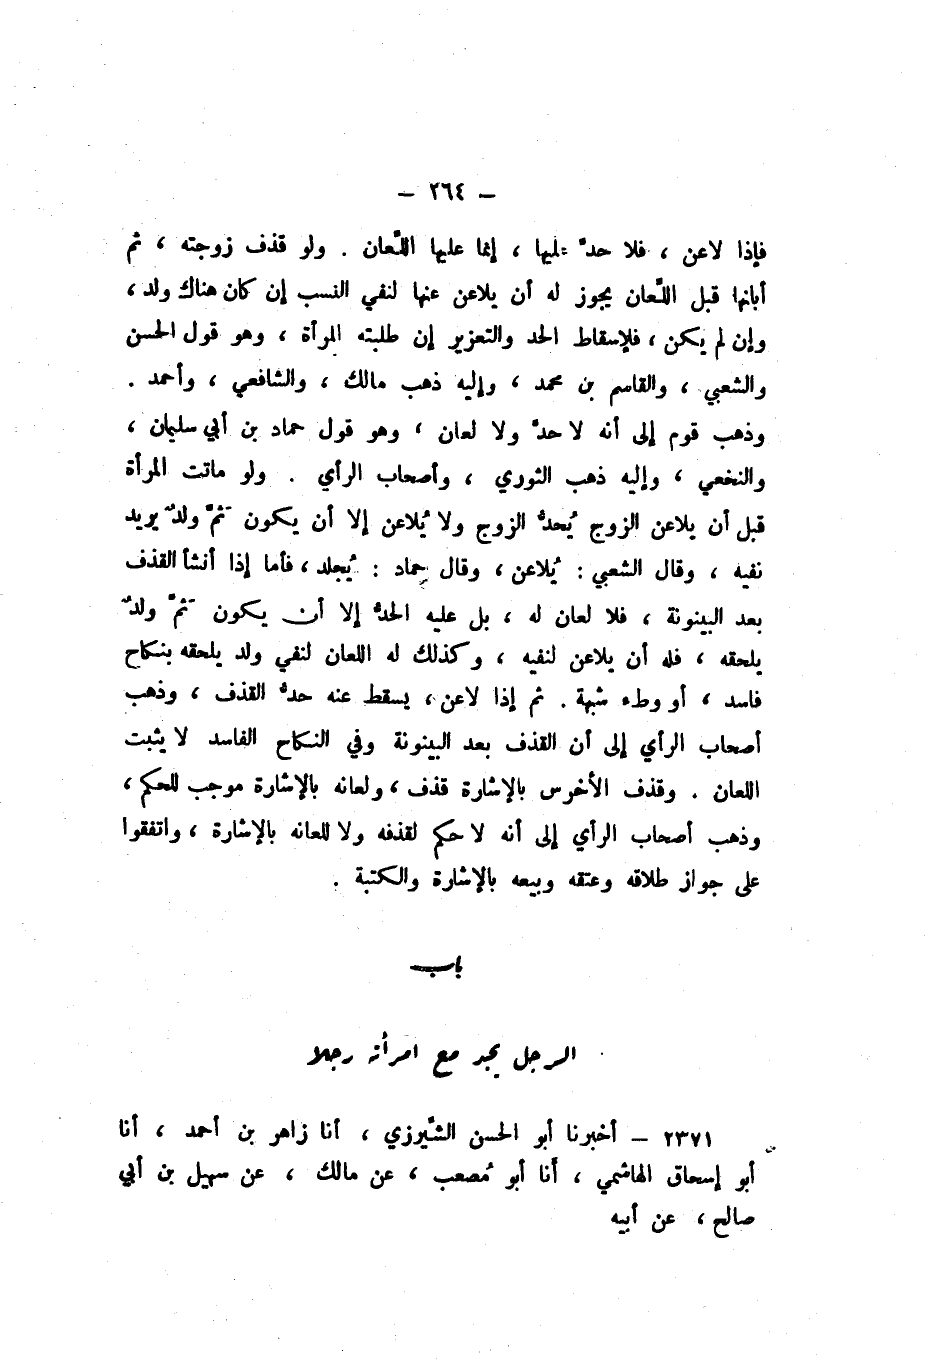 – ٢٦٤ –
فإذا لاعن ، فلا حدَّ عليها ، إنما عليها اللِّعان . ولو قذف زوجته ، ثم
أبانها قبل اللِّعان يجوز له أن يلاعن عنها لنفي النسب إن كان هناك ولد ،
وإن لم يكن ، فلإسقاط الحد والتعزير إن طلبته المرأة ، وهو قول الحسن
والشعبي ، والقاسم بن محمد ، وإليه ذهب مالك ، والشافعي ، وأحمد .
وذهب قوم إلى أنه لا حدَّ ولا لعان ، وهو قول حماد بن أبي سليمان ،
والنخعي ، وإليه ذهب الثوري ، وأصحاب الرأي . ولو ماتت المرأة
قبل أن يلاعن الزوج يُحدُّ الزوج ولا يُلاعن إلا أن يكون ثَمَّ ولدٌ يريد
نفيه ، وقال الشعبي : يُلاعن ، وقال حماد : يُجلد ، فأما إذا أنشأ القذف
بعد البينونة ، فلا لعان له ، بل عليه الحدُّ إلا أن يكون ثَمَّ ولدٌ
يلحقه ، فله أن يلاعن لنفيه ، وكذلك له اللعان لنفي ولد يلحقه بنكاح
فاسد ، أو وطء شبهة . ثم إذا لاعن ، يسقط عنه حدُّ القذف ، وذهب
أصحاب الرأي إلى أن القذف بعد البينونة وفي النكاح الفاسد لا يثبت
اللعان . وقذف الأخرس بالإشارة قذف ، ولعانه بالإشارة موجب للحكم ،
وذهب أصحاب الرأي إلى أنه لا حكم لقذفه ولا للعانه بالإشارة ، واتفقوا
على جواز طلاقه وعتقه وبيعه بالإشارة والكتبة .
باب
الرجل يجد مع امرأته رجلا
٢٣٧١ – أخبرنا أبو الحسن الشِّيرزي ، أنا زاهر بن أحمد ، أنا
أبو إسحاق الهاشمي ، أنا أبو مُصعب ، عن مالك ، عن سهيل بن أبي
صالح ، عن أبيه